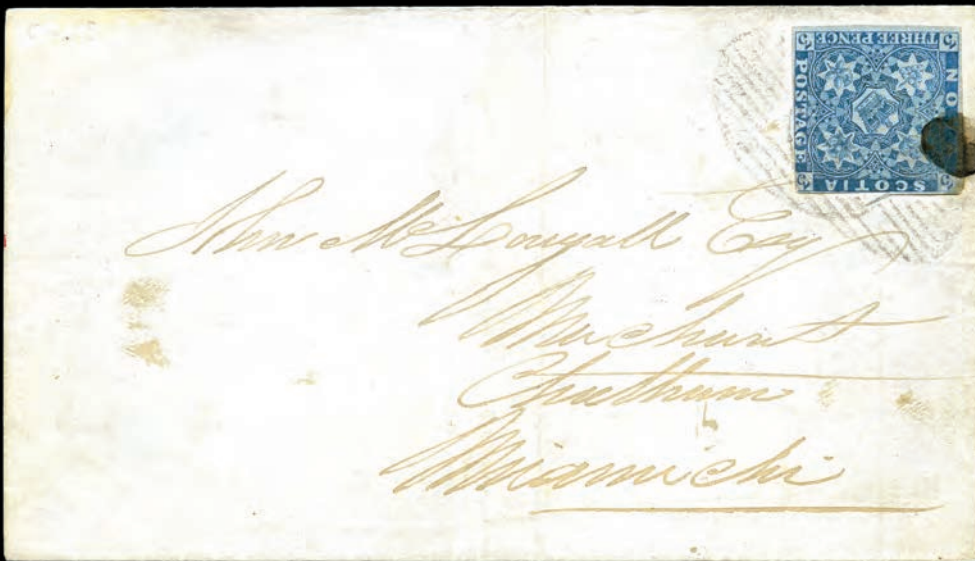 THREE PENCE
NO
POSTAGE
SCOTIA
John McDougall Esq
Merchant
Chatham
Miramichi